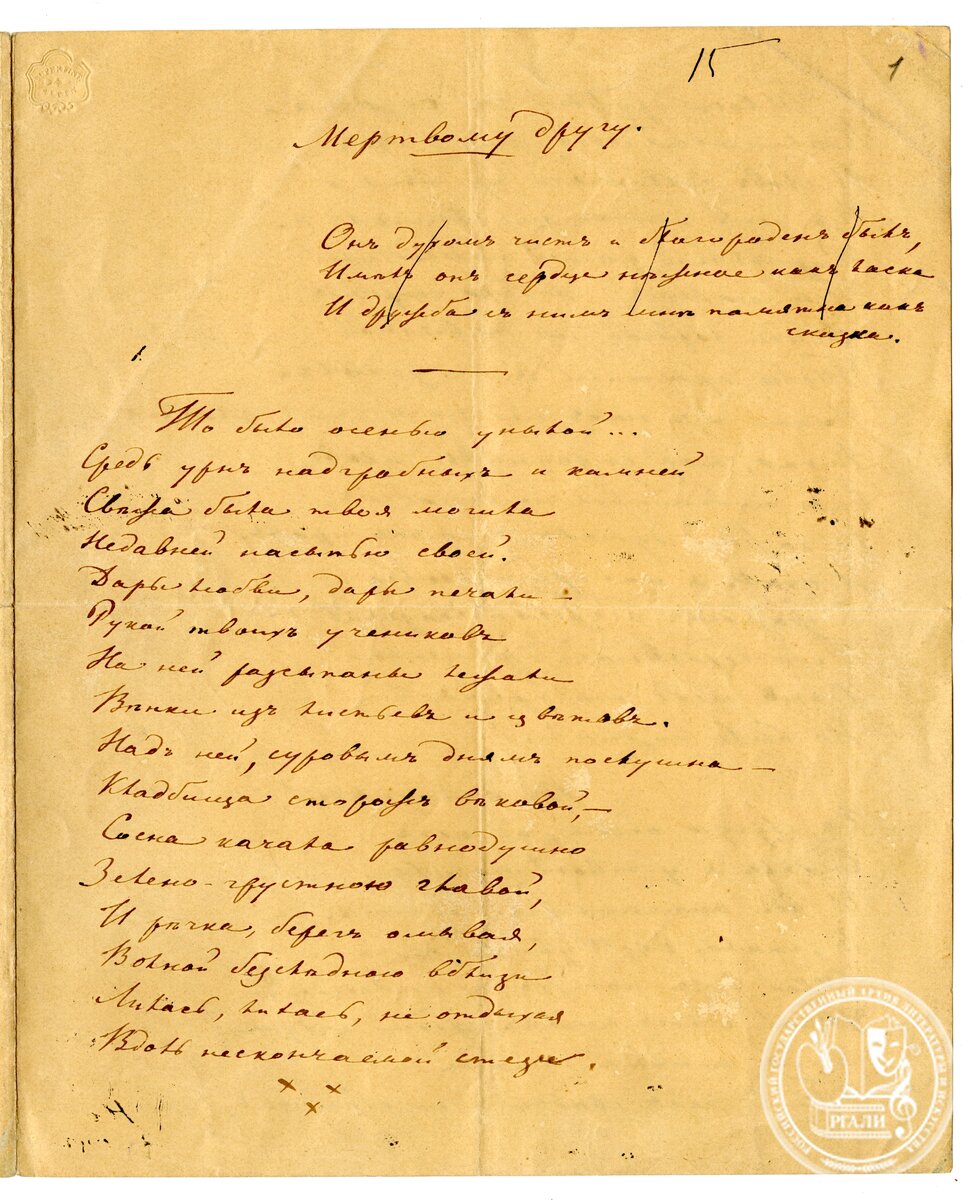 15
1
Мертвому другу.
Онъ духомъ чистъ и благороденъ былъ,
Имѣлъ онъ сердце нѣжное какъ ласка
И дружба съ нимъ мнѣ памятна какъ
сказка.
1.
То было осенью унылой...
Средь урнъ надгробныхъ и камней
Свѣжа была твоя могила
Недавней насыпью своей.
Дары любви, дары печали —
Рукой твоихъ учениковъ
На ней разсыпаны лежали
Вѣнки изъ листьевъ и цвѣтовъ.
Надъ ней, суровымъ днямъ послушна —
Кладбища сторожъ вѣковой, —
Сосна качала равнодушно
Зелено-грустною главой,
И рѣчка, берегъ омывая,
Волной безслѣдною вблизи
Лилась, лилась, не отдыхая
Вдоль нескончаемой стези.
РОССИЙСКИЙ ГОСУДАРСТВЕННЫЙ АРХИВ ЛИТЕРАТУРЫ И ИСКУССТВА
РГАЛИ